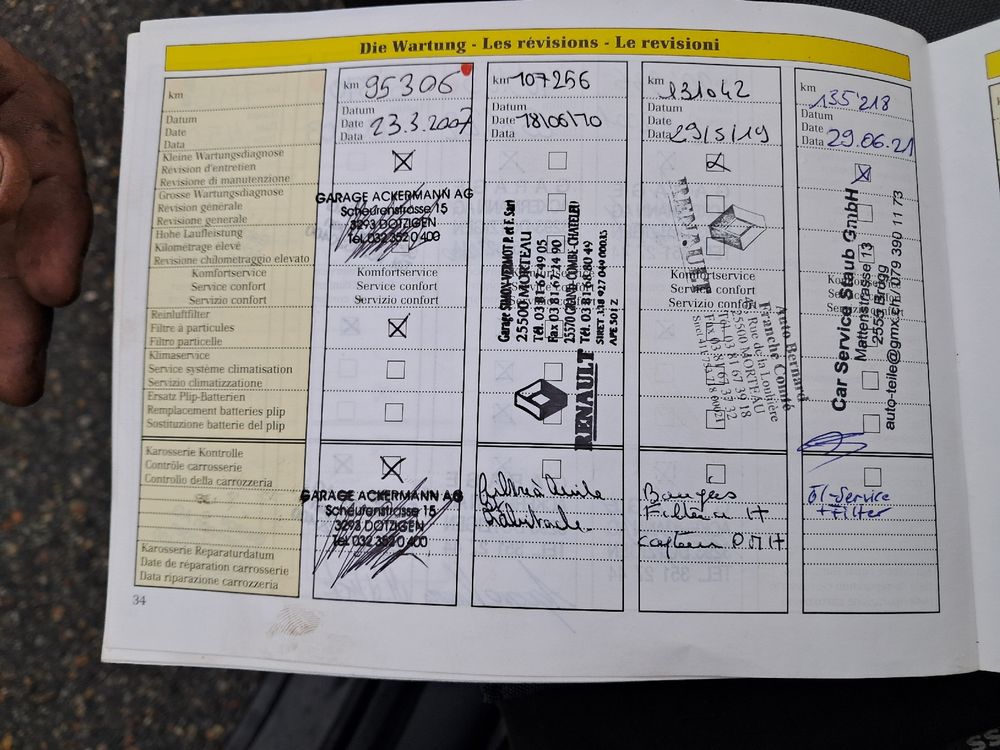 Die Wartung - Les révisions - Le revisioni
km
Datum
Date
Data
Kleine Wartungsdiagnose
Révision d'entretien
Revisione di manutenzione
Grosse Wartungsdiagnose
Révision générale
Revisione generale
Hohe Laufleistung
Kilométrage élevé
Revisione chilometraggio elevato
Komfortservice
Service confort
Servizio confort
Reinluftfilter
Filtre à particules
Filtro particelle
Klimaservice
Service système climatisation
Servizio climatizzazione
Ersatz Plip-Batterien
Remplacement batteries plip
Sostituzione batterie del plip
Karosserie Kontrolle
Contrôle carrosserie
Controllo della carrozzeria
Karosserie Reparaturdatum
Date de réparation carrosserie
Data riparazione carrozzeria
34
km 95306
Datum
Date
Data 23.3.2007
GARAGE ACKERMANN AG
Scheurenstrasse 15
3293 DOTZIGEN
Tel. 032 352 0 400
Komfortservice
Service confort
Servizio confort
GARAGE ACKERMANN AG
Scheurenstrasse 15
3293 DOTZIGEN
Tel. 032 352 0 400
km 107256
Datum
Date
Data 18/06/10
Garage SIMON-VERMOT P. et F. Sarl
25500 MORTEAU
Tél. 03 81 67 49 05
Fax 03 81 67 14 90
25570 GRAND-COMBE-CHATELEU
Tél. 03 81 68 80 49
RENAULT
km 131042
Datum
Date
Data 29/5/19
RENAULT
Komfortservice
Service confort
Servizio confort
Auto Bernard
Franche Comté
Rue de la Louhière
25500 MORTEAU
Tel. 03 81 67 39 18
km 135'218
Datum
Date
Data 29.06.21
Car Service Staub GmbH
Mattenstrasse 13
2555 Brügg
auto-teile@gmx.ch / 079 390 11 73
Öl-Service
+ Filter